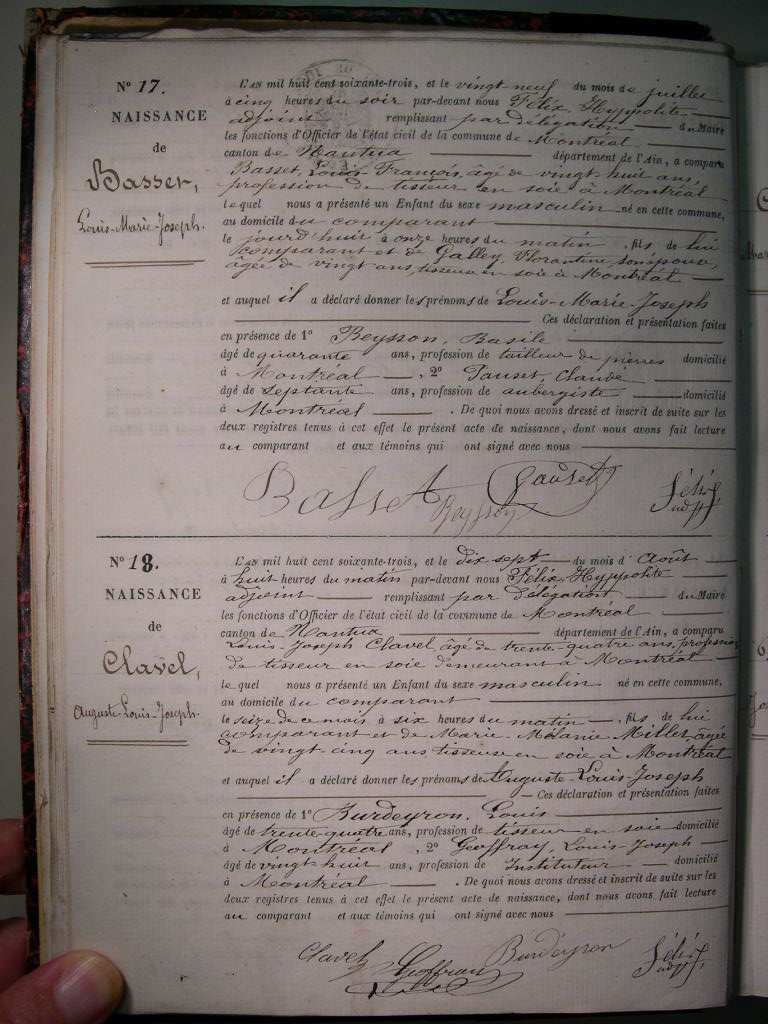 N° 17.
NAISSANCE
de
Basset,
Louis-Marie-Joseph.
L'AN mil huit cent soixante-trois, et le vingt neuf du mois de juillet
à cinq heures du soir par-devant nous Félix, Hyppolite
adjoint remplissant par délégation du Maire
les fonctions d'Officier de l'état civil de la commune de Montréal
canton de Nantua département de l'Ain, a comparu
Basset, Louis-François, âgé de vingt huit ans,
profession de tisseur en soie à Montréal
lequel nous a présenté un Enfant du sexe masculin né en cette commune,
au domicile du comparant
le jourd'huir à onze heures du matin, fils de lui
comparant et de Galley, Florentine son épouse,
âgée de vingt ans, tisseuse en soie à Montréal
et auquel il a déclaré donner les prénoms de Louis-Marie-Joseph
Ces déclaration et présentation faites
en présence de 1° Beysson, Basile
âgé de quarante ans, profession de tailleur de pierres domicilié
à Montréal, 2° Pauset, Claude
âgé de septante ans, profession de aubergiste domicilié
à Montréal. De quoi nous avons dressé et inscrit de suite sur les
deux registres tenus à cet effet le présent acte de naissance, dont nous avons fait lecture
au comparant et aux témoins qui ont signé avec nous
Basset Beysson Pauset Félix
adjt
N° 18.
NAISSANCE
de
Clavel,
Auguste-Louis-Joseph.
L'AN mil huit cent soixante-trois, et le dix sept du mois d'Août
à huit heures du matin par-devant nous Félix, Hyppolite
adjoint remplissant par délégation du Maire
les fonctions d'Officier de l'état civil de la commune de Montréal
canton de Nantua département de l'Ain, a comparu
Louis-Joseph Clavel âgé de trente-quatre ans, profession
de tisseur en soie demeurant à Montréal
lequel nous a présenté un Enfant du sexe masculin né en cette commune,
au domicile du comparant
le seize de ce mois à six heures du matin, fils de lui
comparant et de Marie-Mélanie Millet âgée
de vingt-cinq ans tisseuse en soie à Montréal
et auquel il a déclaré donner les prénoms de Auguste-Louis-Joseph
Ces déclaration et présentation faites
en présence de 1° Burdeyron, Louis
âgé de trente-quatre ans, profession de tisseur en soie domicilié
à Montréal, 2° Geoffray, Louis-Joseph
âgé de vingt huit ans, profession de Instituteur domicilié
à Montréal. De quoi nous avons dressé et inscrit de suite sur les
deux registres tenus à cet effet le présent acte de naissance, dont nous avons fait lecture
au comparant et aux témoins qui ont signé avec nous
Clavel Geoffray Burdeyron Félix
adjt